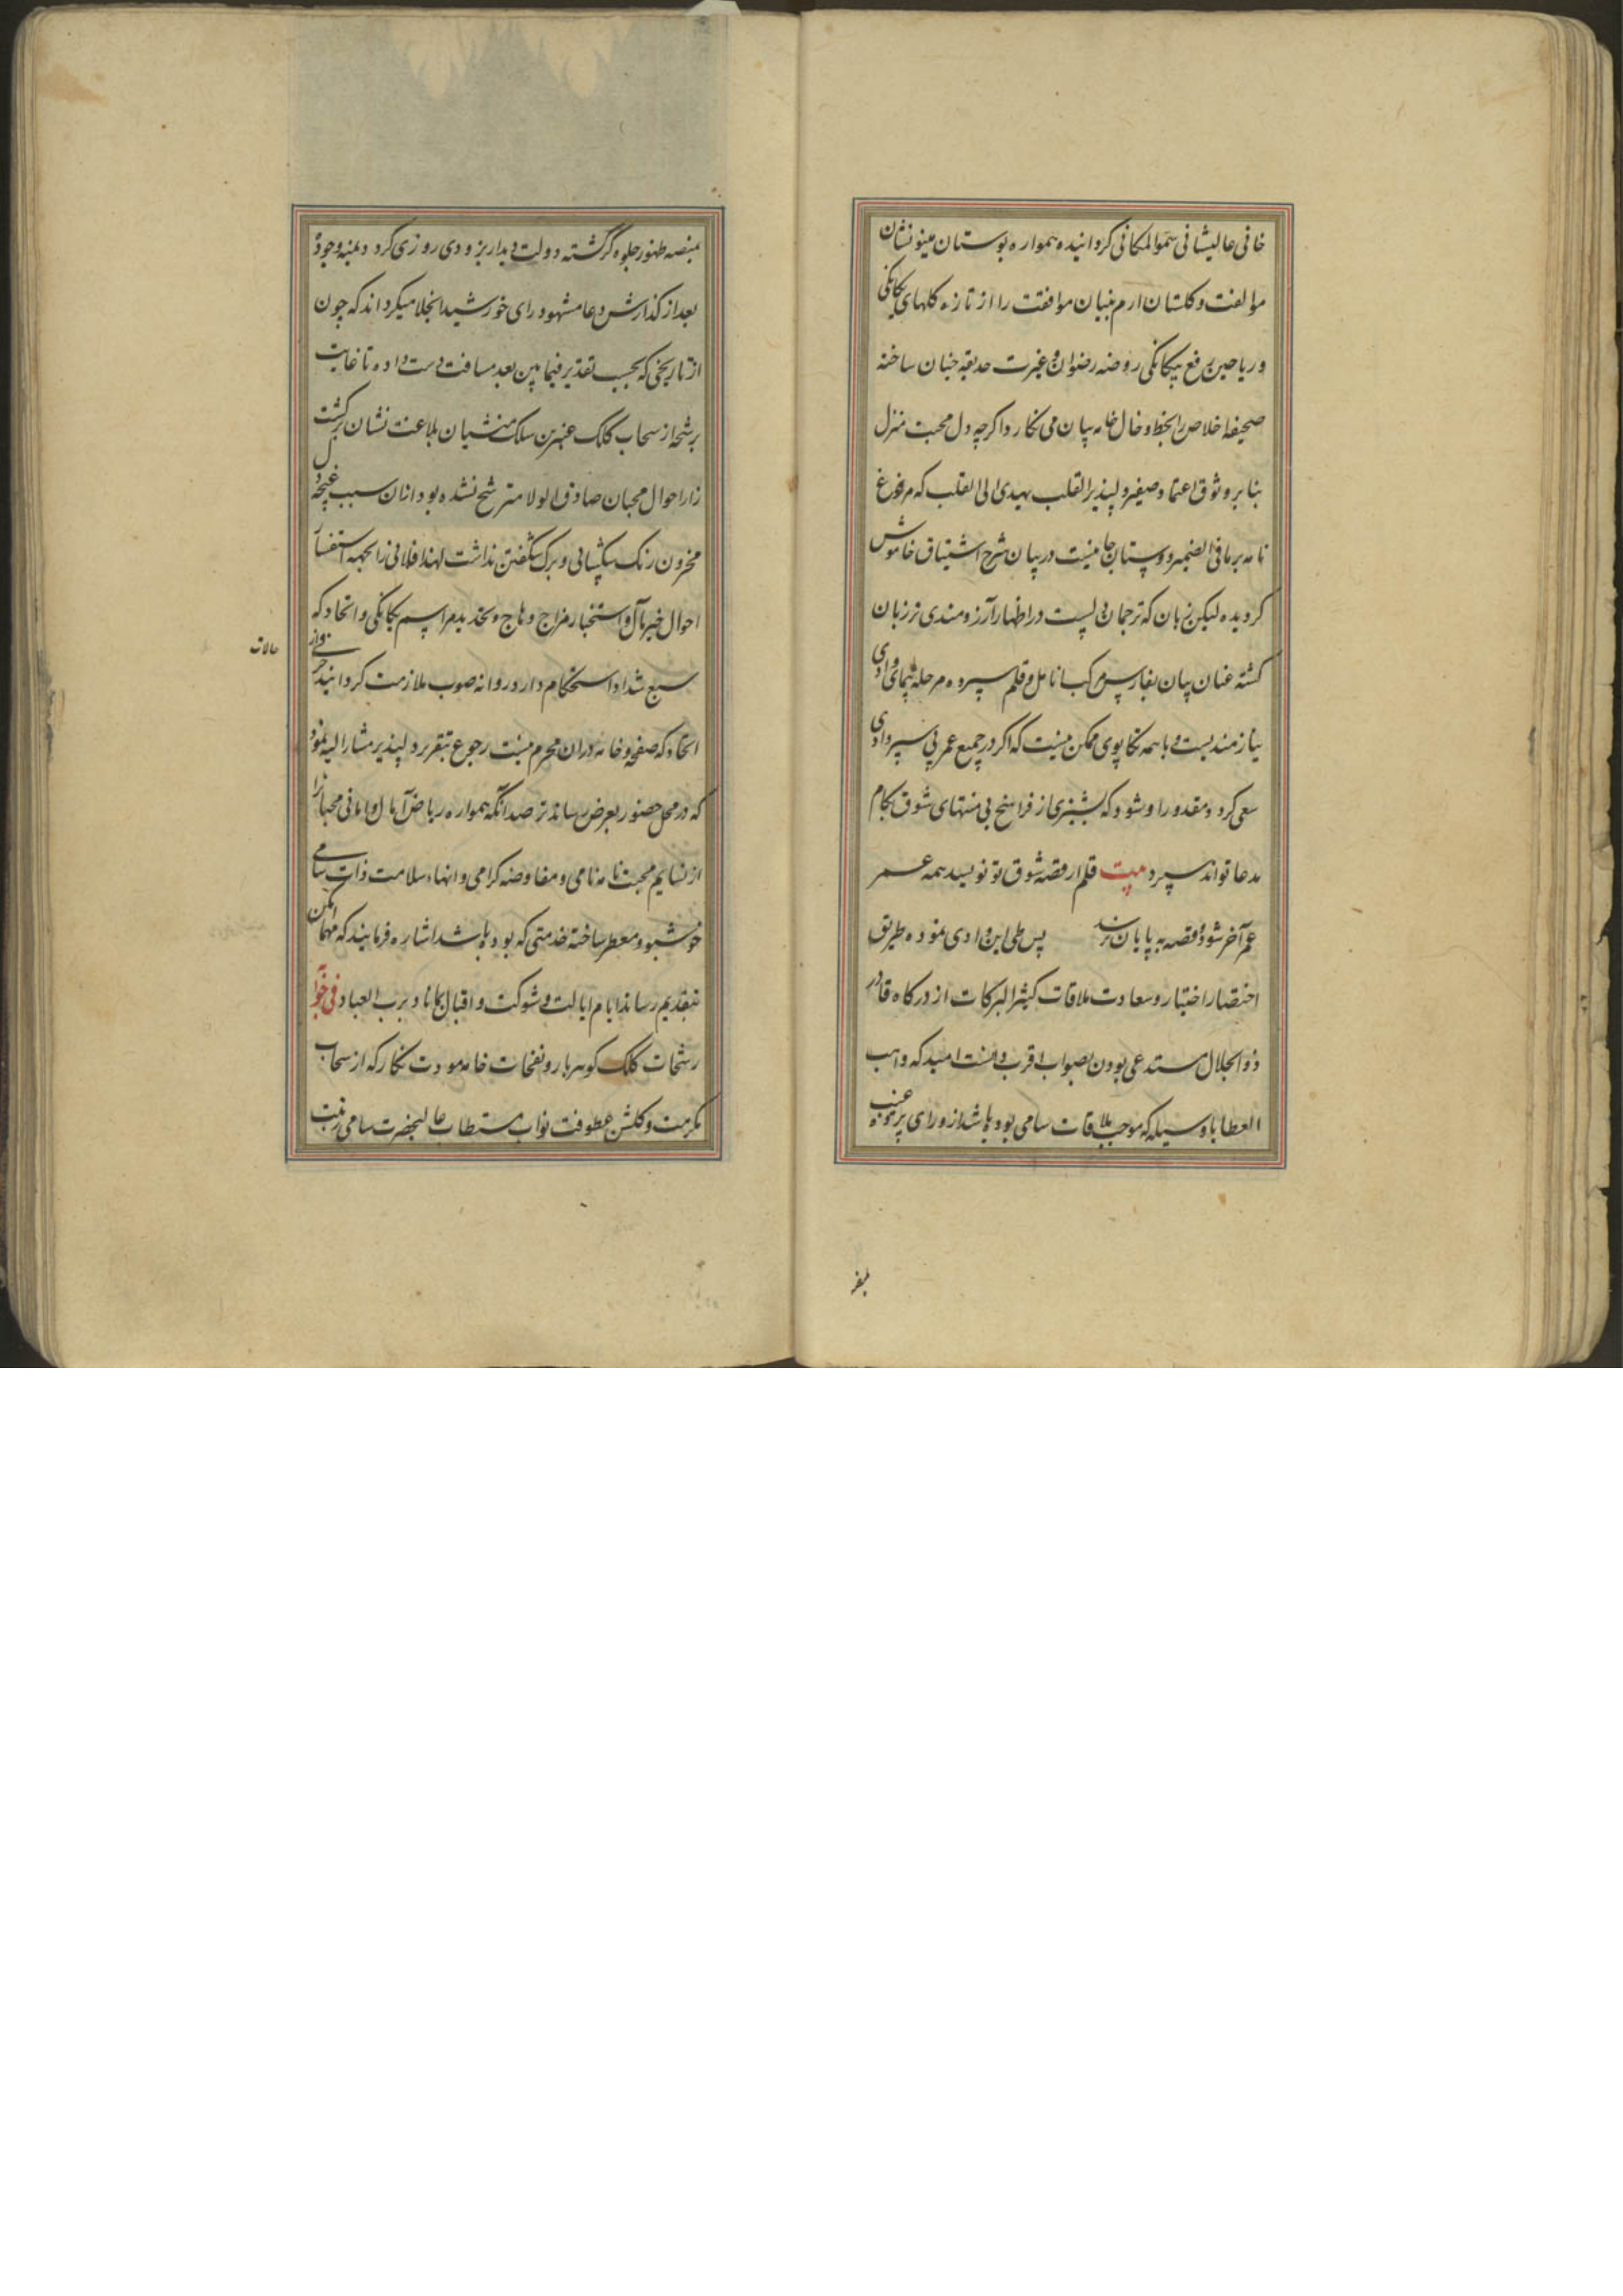 خاقی عالیشانی سموالمکانی کردانیده همواره بوستان مینونشان
موالفت و کلستان ارم بنیان موافقت را از تازه کلهای یکانکی
و ریاحین رفع بیکانکی روضه رضوان و غیرت حدیقه جنان ساخته
صحیفه اخلاص را بخط و خال خامه بیان می نکارد اکرچه دل محبت منزل
بنابر وثوق اعتماد صفیر دلپذیر القلب یهدی الی القلب که مرغ
نامه بر مافی الضمیر دوستان جانیست در بیان شرح اشتیاق خاموش
کردیده لیکن زبان که ترجمان دلست در اظهار آرزومندی تر زبان
کشته عنان بیان بفارس مرکب انامل و قلم سپرده مرحله پیمای وادی
نیازمندیست و با همه تکاپوی ممکن نیست که اکر در جمیع عمر پی سپر وادی
سعی کردد مقدور او شود که شبری از فراسخ بی منتهای شوق بکام
مدعا تواند سپرد بیت قلم ار قصه شوق تو نویسد همه عمر
عمر آخر شود و قصه به پایان نرسد پس طی این وادی نموده طریق
اختصار اختیار و سعادت ملاقات کثیر البرکات از درکاه قادر
ذوالجلال مستدعی بودن بصواب اقرب دانست امید که واهب
العطایا وسیله که موجب ملاقات سامی بوده باشد از ورای پرده غیب
بمنصه ظهور جلوه کر کشته دولت دیدار بزودی روزی کردد بمنه وجوده
بعد از کذارش دعا مشهود رای خورشید انجلا میکرداند که چون
از تاریخی که بحسب تقدیر فیمابین بعد مسافت دست داده تا غایت
رشحه از سحاب کلک عنبرین سلک منشیان بلاغت نشان بر کشت
زار احوال محبان صادق الولا مترشح نشده بود ازان سبب غنچه دل
محزون رنک شکیبائی و برک شکفتن نداشت لهذا فلانی را بجهة استفسار
احوال خیر مآل و استخبار مزاج وهاج و تجدید مراسم یکانکی و اتحاد که
سبع شداد استحکام دارد روانه صوب ملازمت کردانید
حالات
اتحاد که صفحه و خامه دران محرم نیست رجوع بتقریر دلپذیر مشار الیه نمود
که در محل حضور بعرض رساند ترصد انکه همواره ریاض آمال و امانی محبانرا
از نسایم محبت نامه نامی و مفاوضه کرامی و انهاء سلامت ذات سامی
خوشبو و معطر ساخته خدمتی که بوده باشد اشاره فرمایند که مهما امکن
بتقدیم رساند ایام ایالت و شوکت و اقبال بکام باد برب العباد فی جوابه
رشحات کلک کوهربار و نفحات خامه مودت نکار که از سحاب
مکرمت و کلشن عطوفت نواب مستطاب عالیحضرت سامی رتبت